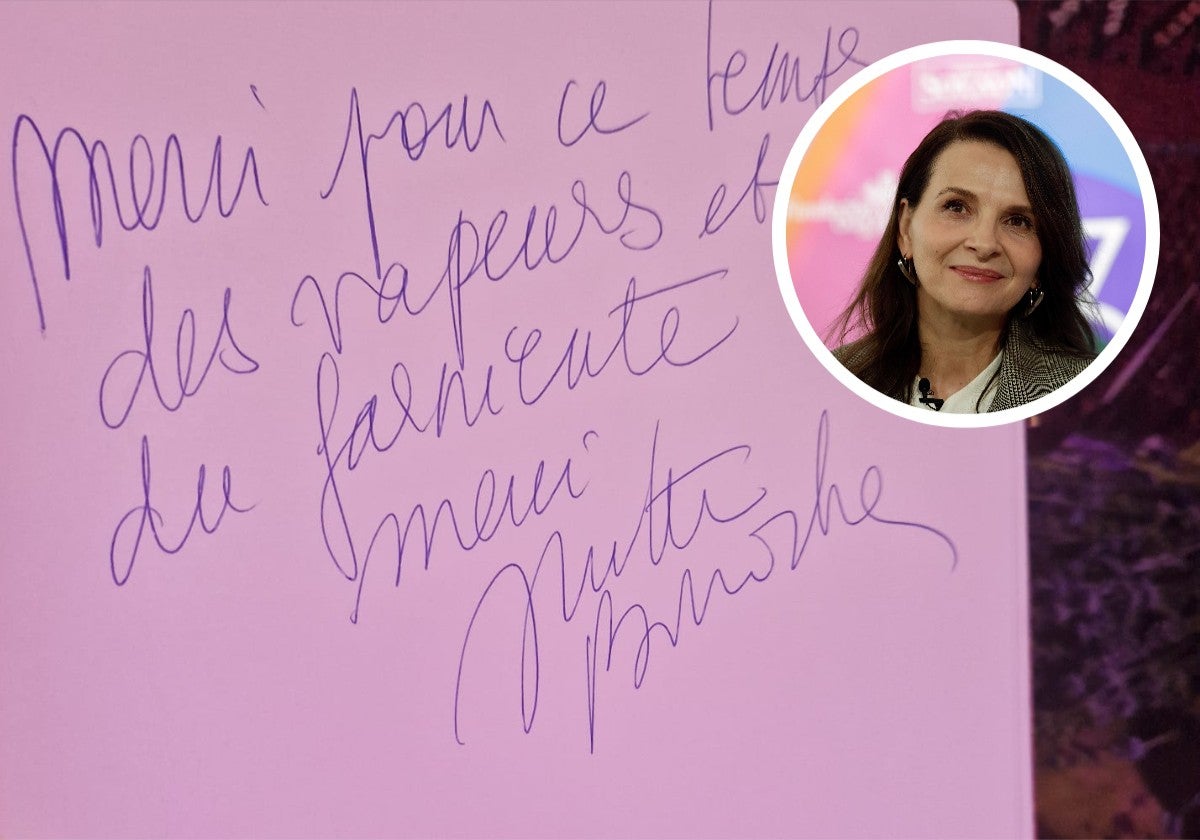 Merci pour ce temps
des vapeurs et
du farniente
merci
Juliette
Binoche
7